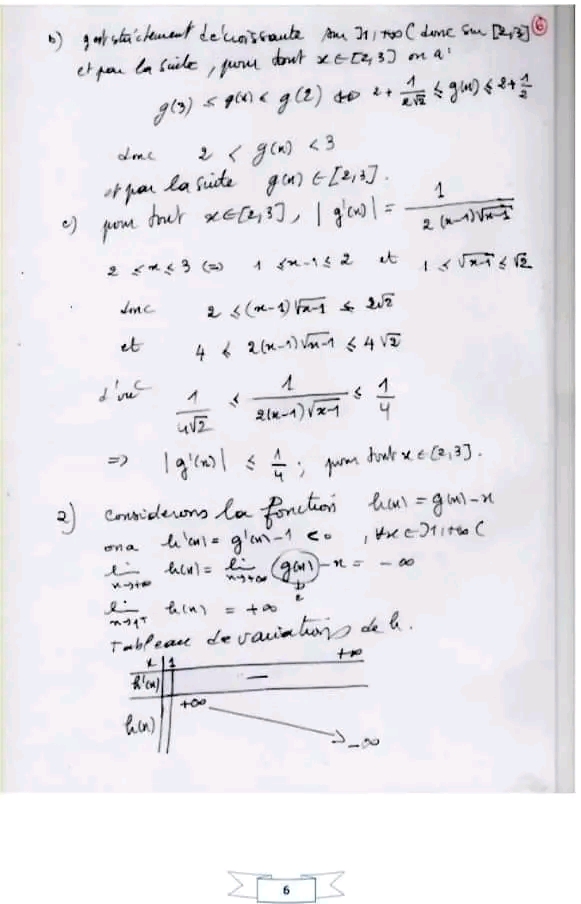 b) g est strictement décroissante sur ]1,+∞[ donc sur [2,3] 6
et par la suite, pour tout x∈[2,3] on a:
g(3) ≤ g(x) ≤ g(2) ⇔ 2+1/2√2 ≤ g(x) ≤ 2+1/2
donc 2 < g(x) < 3
et par la suite g(x) ∈ [2,3].
c) pour tout x∈[2,3], |g'(x)| = 1/2(x-1)√x-1
2 ≤ x ≤ 3 (=) 1 ≤ x-1 ≤ 2 et 1 ≤ √x-1 ≤ √2
donc 2 ≤ (x-1)√x-1 ≤ 2√2
et 4 ≤ 2(x-1)√x-1 ≤ 4√2
d'où 1/4√2 ≤ 1/2(x-1)√x-1 ≤ 1/4
=> |g'(x)| ≤ 1/4 ; pour tout x∈[2,3].
2) considerons la fonction h(x) = g(x)-x
on a h'(x) = g'(x)-1 <0 , ∀x∈]1,+∞[
lim x→+∞ h(x) = lim x→+∞ (g(x))-x = -∞
2
lim x→1+ h(x) = +∞
Tableau de variations de h.
x 1 +∞
h'(x) —
h(x) +∞ -∞
6